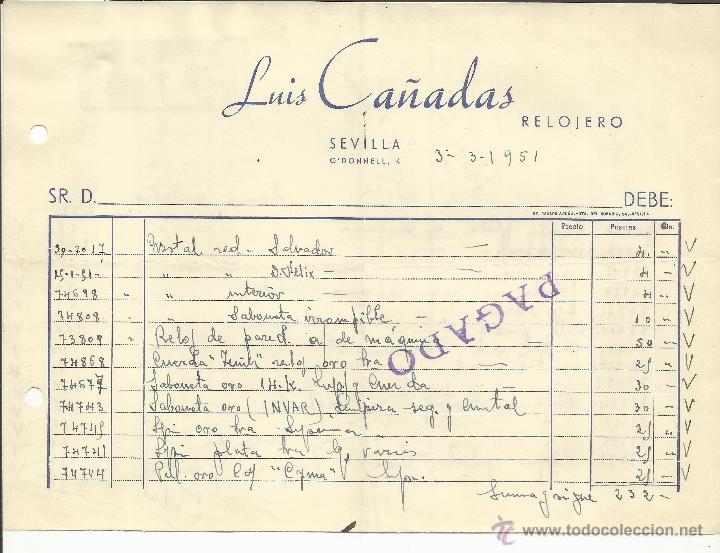 Luis Cañadas
RELOJERO
SEVILLA
O'DONNELL, 4
3-3-1951
SR. D. DEBE:
Precio Pesetas Cts.
Cristal red - Salvador - 4 -
15-1-51- " " D. Félix - 4 -
74698 " " interior - 4 -
74808 " Saboneta irrompible - 10 -
73809 " Reloj de pared. of de máquina 50 -
74868 Cuerda reloj oro tra 25 -
74679 Saboneta oro 14.K. Limp y Cuerda - 30 -
74743 Saboneta oro (INVAR) Limpieza seg. y Cristal 30 -
74745 oro tra 25 "
74741 plata tra varios 25 "
74744 Pul. oro "Cyma" 25 -
Suma y sigue 232 -
PAGADO
www.todocoleccion.net